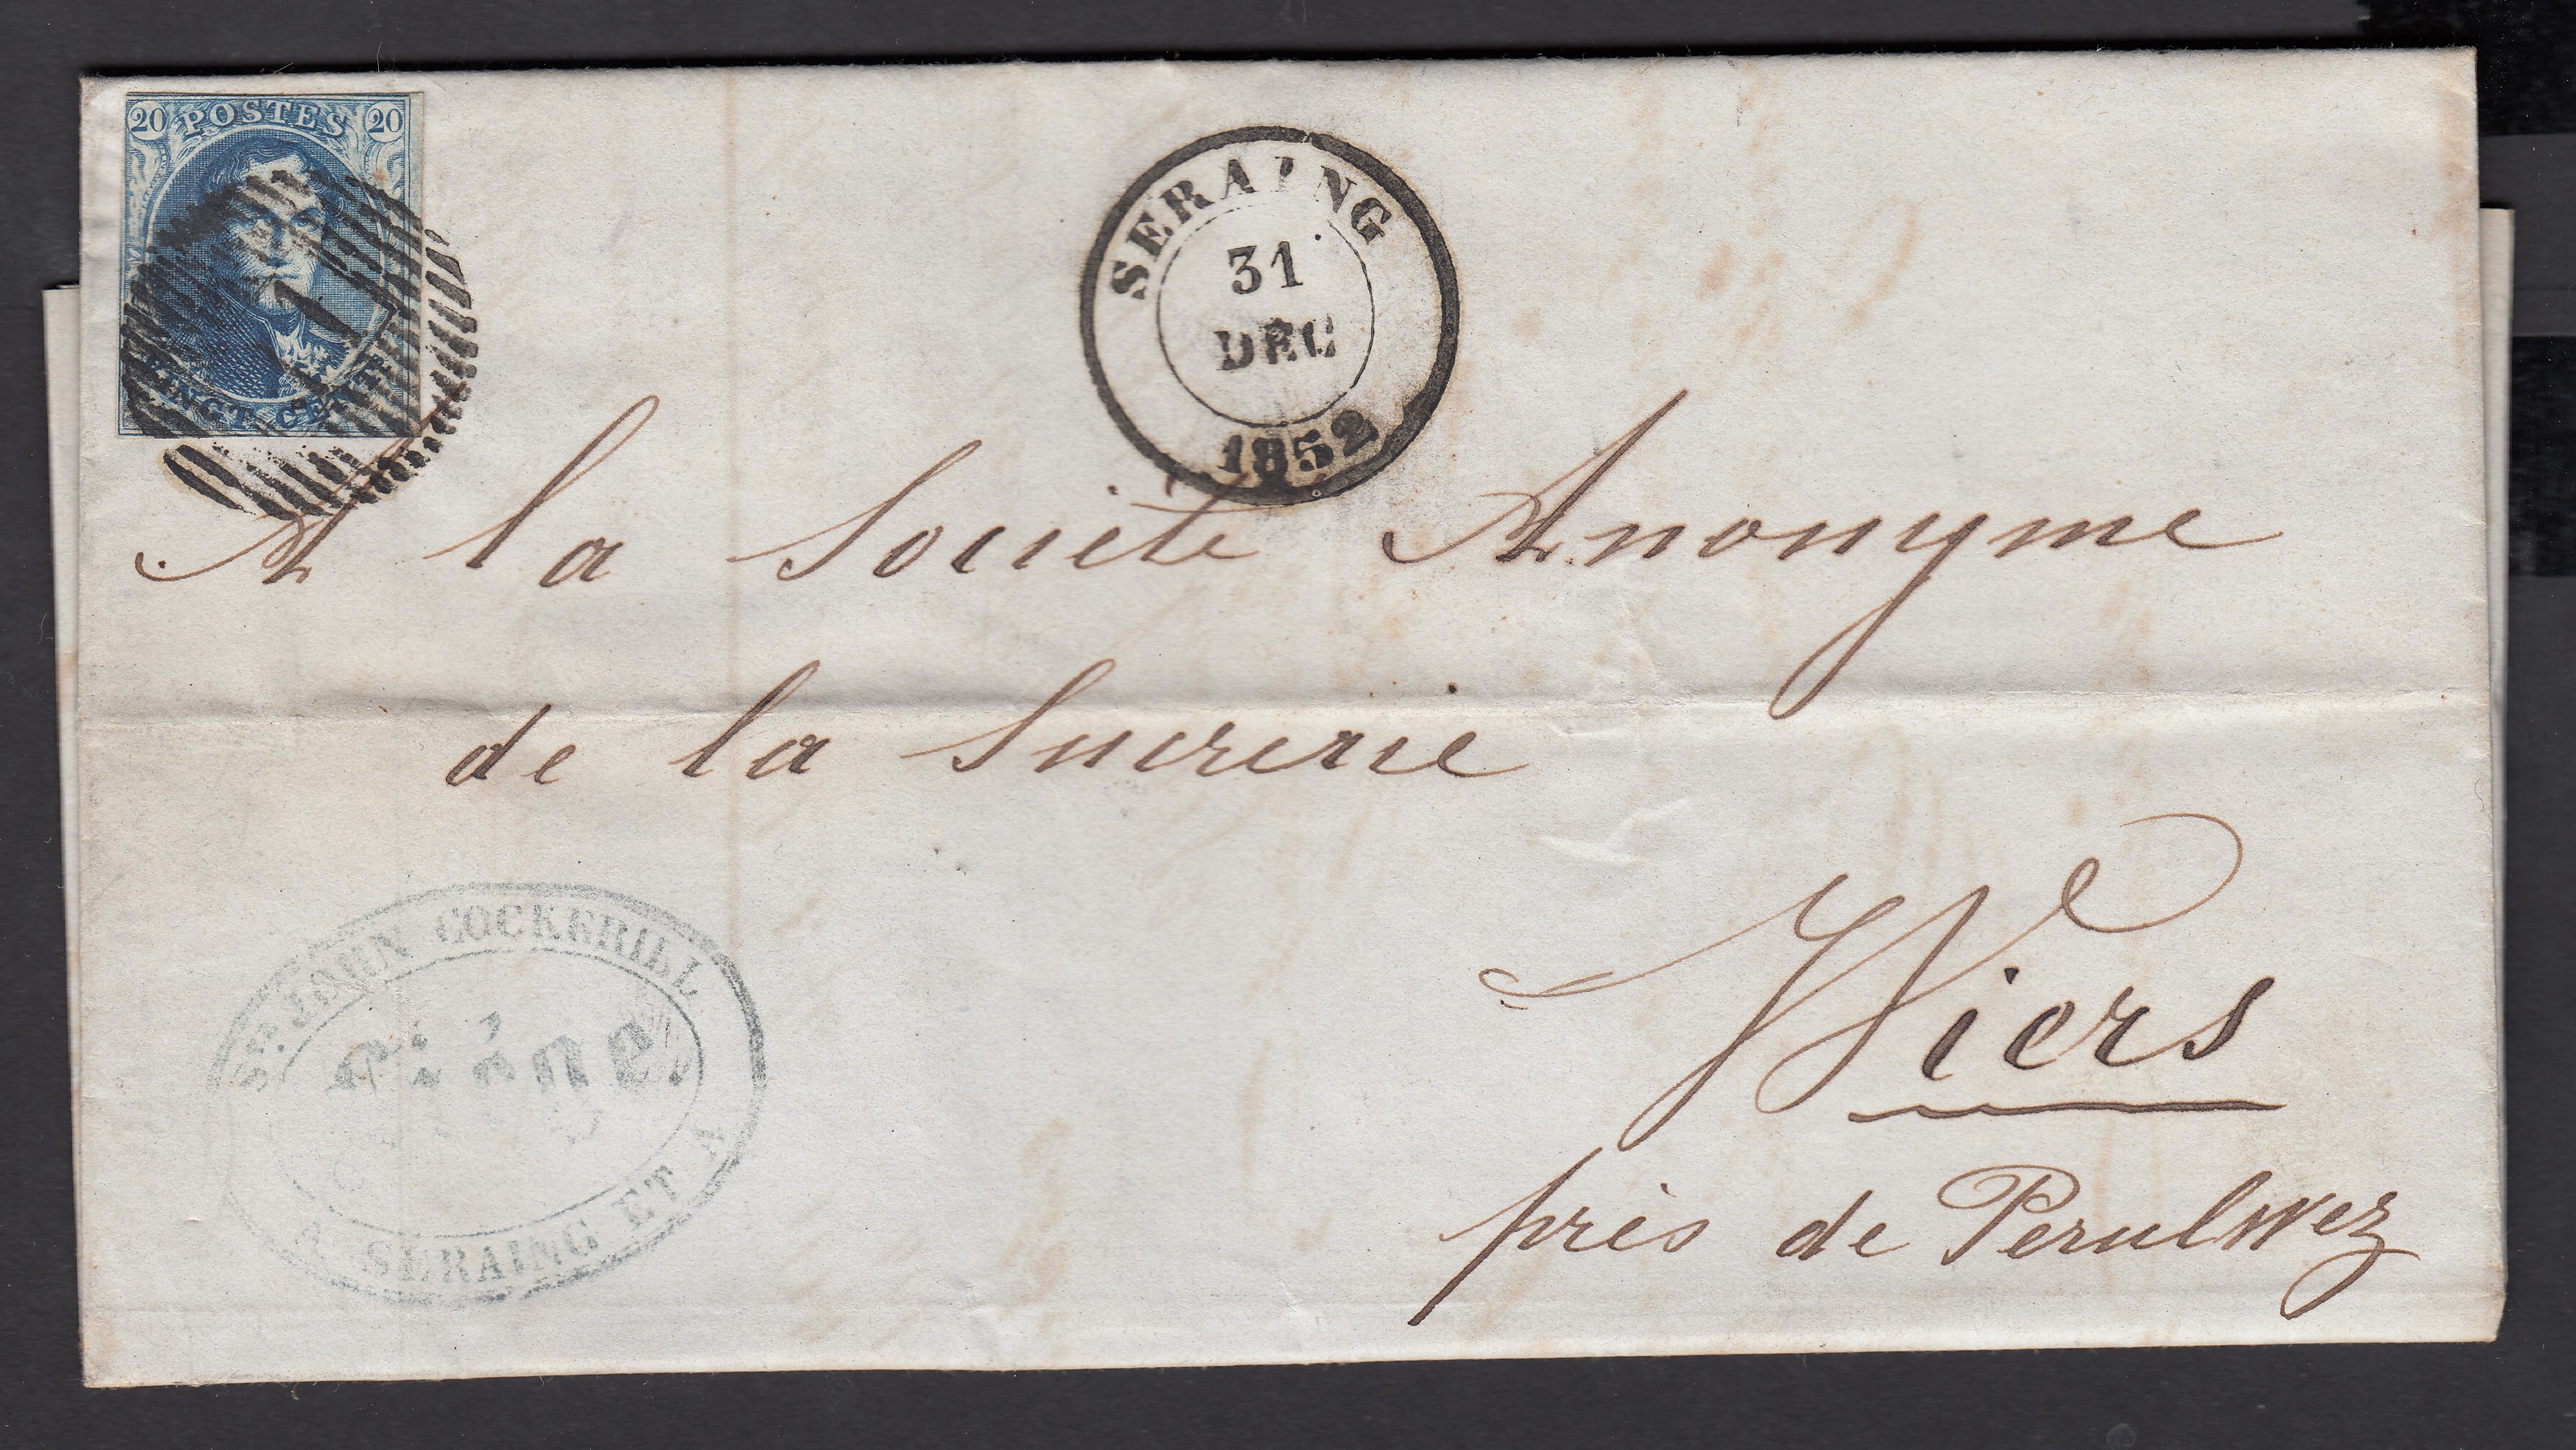 20 POSTES 20
VINGT CENTS
SERAING
31
DEC
1852
A la Société Anonyme
de la Sucrerie
Wiers
près de Perulwez
JOHN COCKERILL
Liége
A SERAING ET A